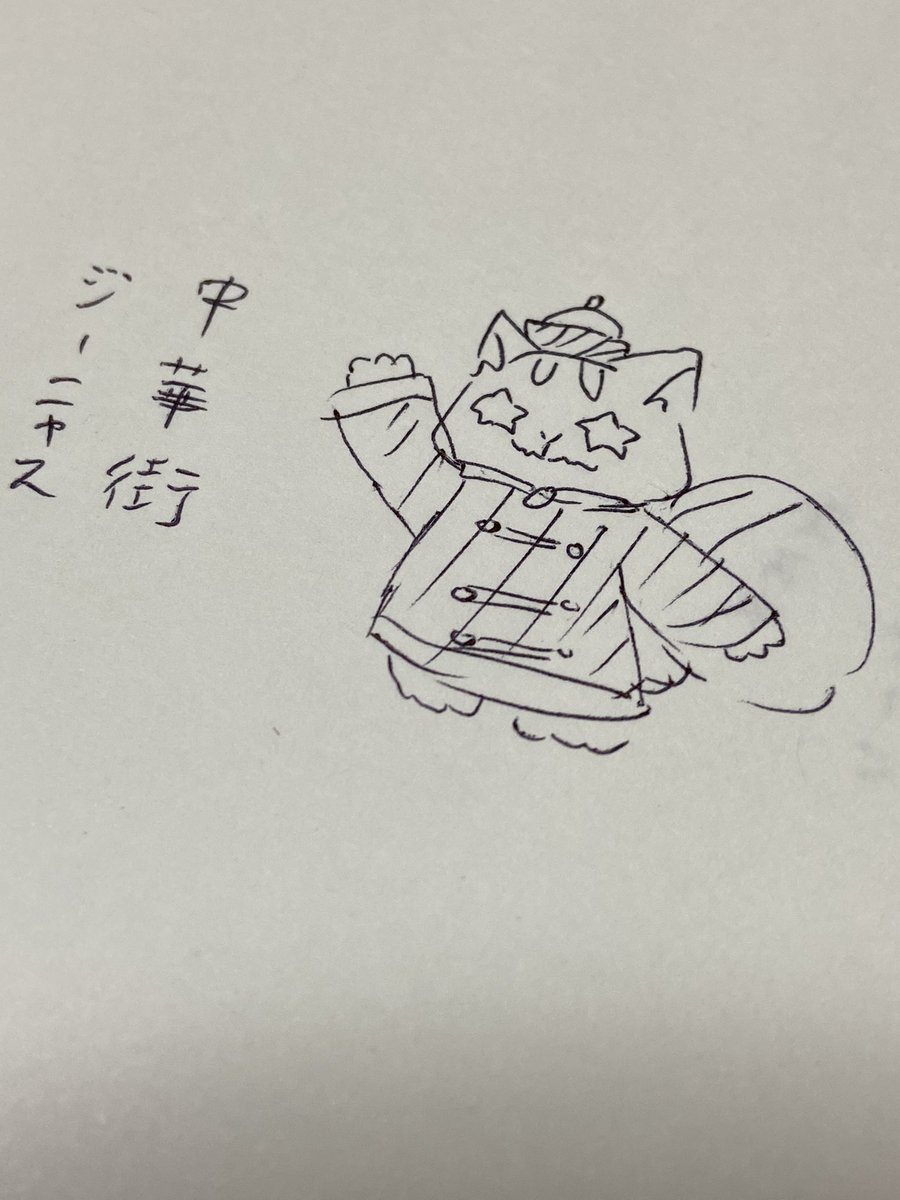 中華街
ジーニャス